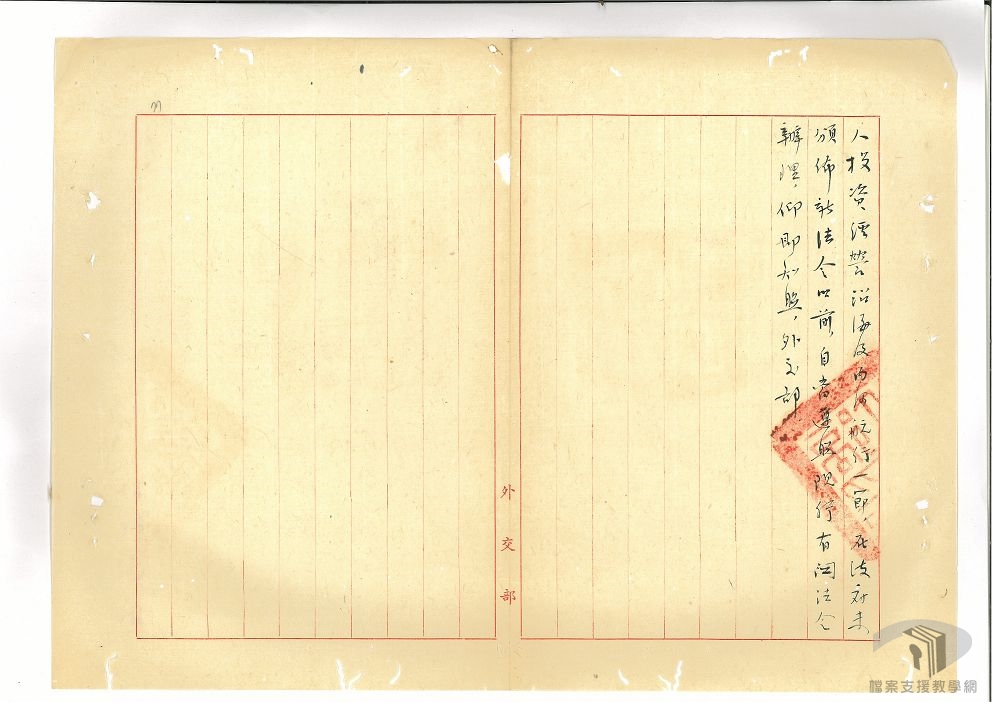 人投資經營沿海及內河航行一節，在政府未
頒佈新法令以前，自當遵照現行有關法令
辦理，仰即知照，外交部
外交部
檔案支援教學網